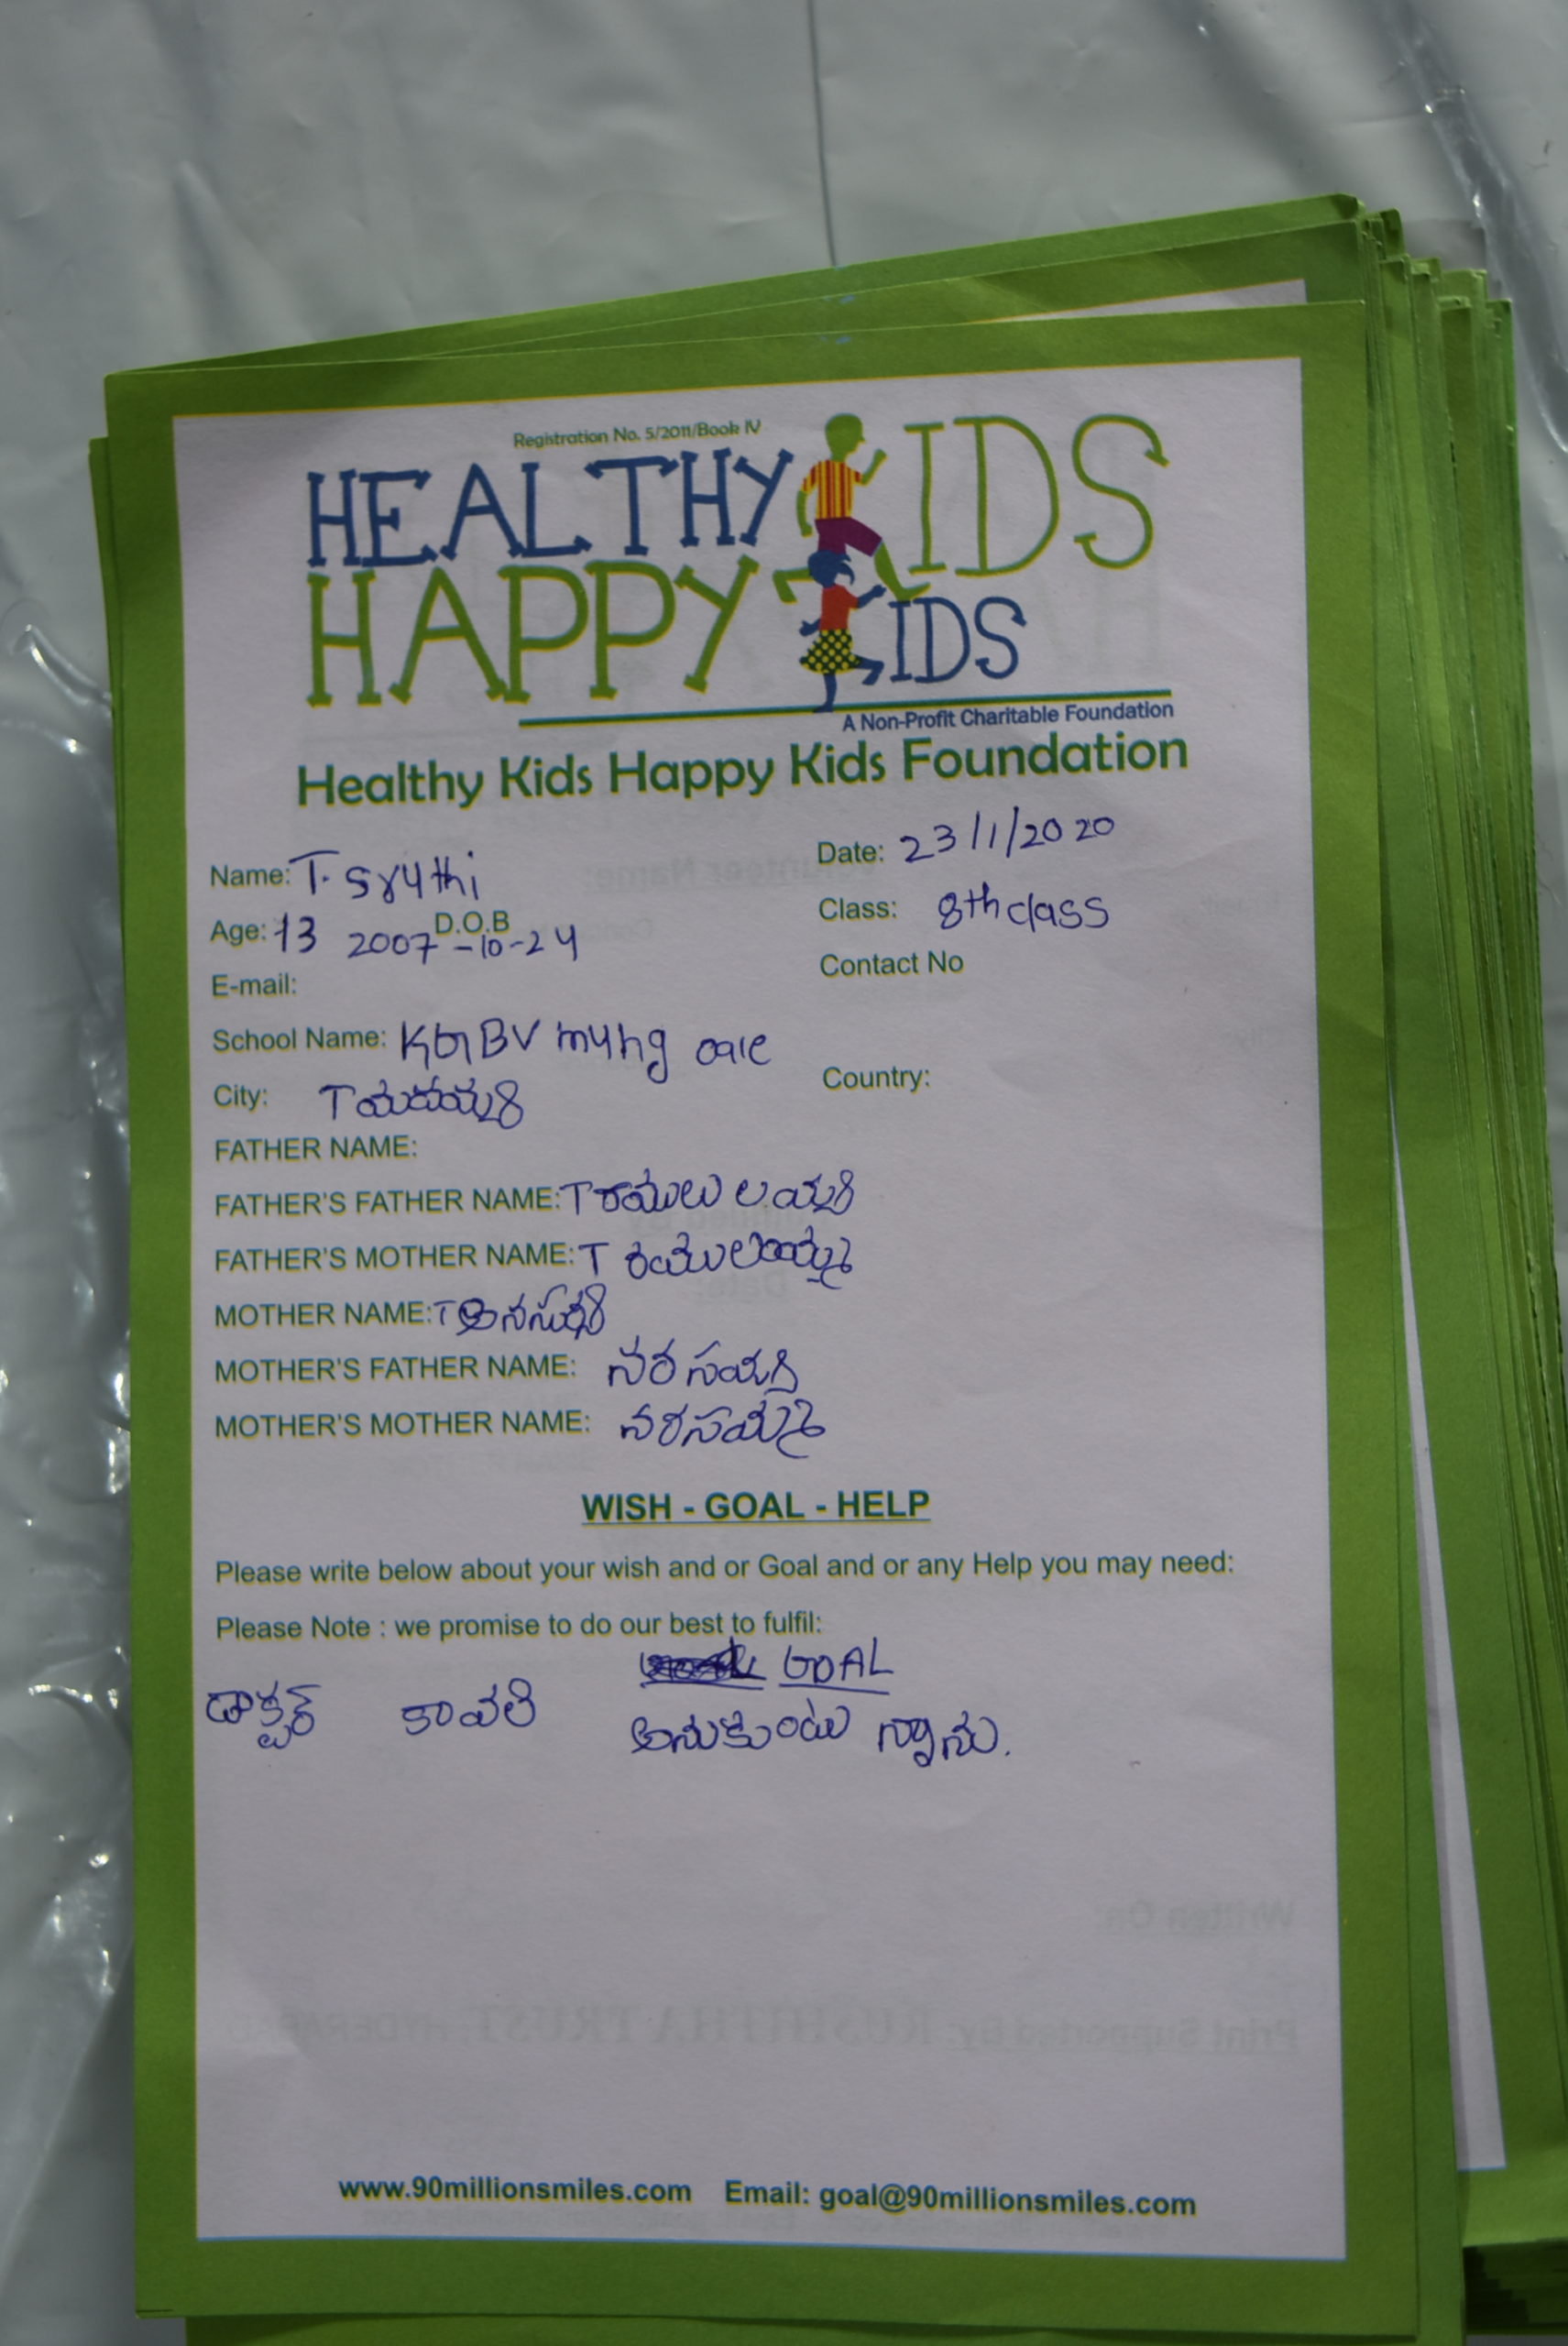 Registration No. 5/2011/Book IV
HEALTHY KIDS
HAPPY KIDS
A Non-Profit Charitable Foundation
Healthy Kids Happy Kids Foundation
Name: T. Sruthi Date: 23/1/2020
Age: 13 D.O.B 2007-10-24 Class: 8th class
E-mail: Contact No
School Name: KGBV
City: T Country:
FATHER NAME:
FATHER'S FATHER NAME: T
FATHER'S MOTHER NAME: T
MOTHER NAME: T
MOTHER'S FATHER NAME:
MOTHER'S MOTHER NAME: నరసమ్మ
WISH - GOAL - HELP
Please write below about your wish and or Goal and or any Help you may need:
Please Note : we promise to do our best to fulfil:
GOAL
డాక్టర్ కావలి అనుకుంటు న్నాను.
www.90millionsmiles.com Email: goal@90millionsmiles.com